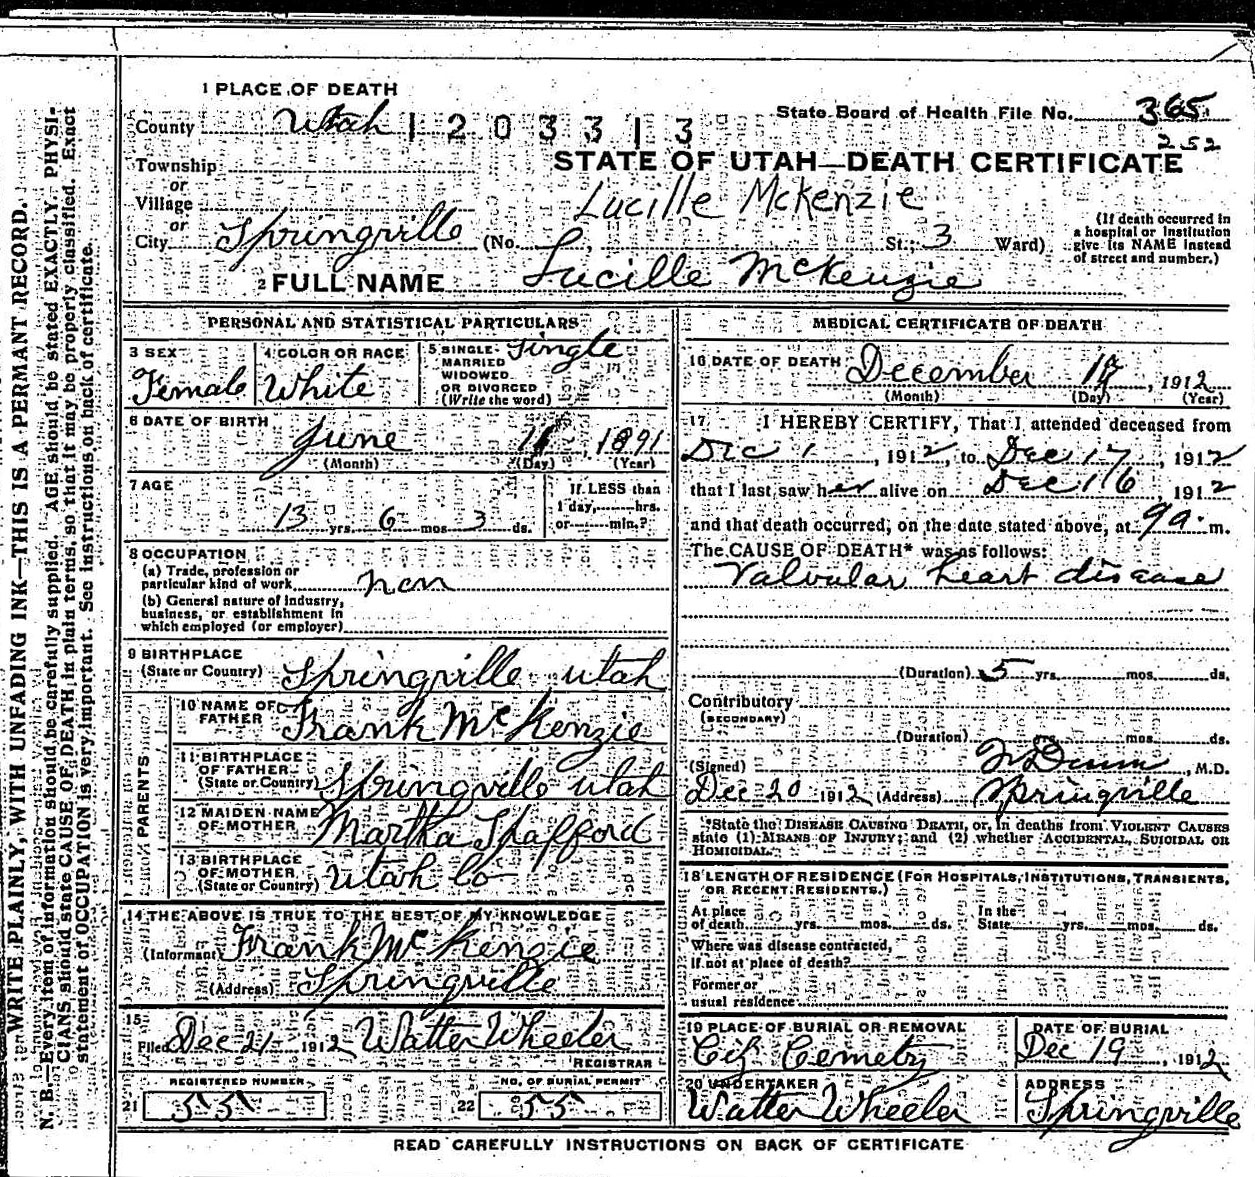 1 PLACE OF DEATH
County Utah 1203313
State Board of Health File No. 365
252
Township
STATE OF UTAH—DEATH CERTIFICATE
or
Village
Lucille McKenzie
or
City Springville (No. St.; 3 Ward)
(If death occurred in a hospital or institution give its NAME instead of street and number.)
2 FULL NAME Lucille McKenzie
PERSONAL AND STATISTICAL PARTICULARS
3 SEX Female
4 COLOR OR RACE White
5 SINGLE MARRIED WIDOWED OR DIVORCED (Write the word) Single
6 DATE OF BIRTH June 1891
(Month) (Day) (Year)
7 AGE 13 yrs. 6 mos. 3 ds.
If LESS than 1 day, hrs. or min.?
8 OCCUPATION
(a) Trade, profession or particular kind of work non
(b) General nature of industry, business, or establishment in which employed (or employer)
9 BIRTHPLACE
(State or Country) Springville utah
PARENTS
10 NAME OF FATHER Frank McKenzie
11 BIRTHPLACE OF FATHER (State or Country) Springville utah
12 MAIDEN NAME OF MOTHER Martha Spafford
13 BIRTHPLACE OF MOTHER (State or Country) Utah Co
14 THE ABOVE IS TRUE TO THE BEST OF MY KNOWLEDGE
(Informant) Frank McKenzie
(Address) Springville
15 Filed Dec 21 1912 Walter Wheeler
REGISTRAR
21 REGISTERED NUMBER 55
22 NO. OF BURIAL PERMIT 55
MEDICAL CERTIFICATE OF DEATH
16 DATE OF DEATH December 17, 1912
(Month) (Day) (Year)
17 I HEREBY CERTIFY, That I attended deceased from
Dec 1, 1912, to Dec 17, 1912
that I last saw her alive on Dec 16, 1912
and that death occurred, on the date stated above, at 9 a. m.
The CAUSE OF DEATH* was as follows:
Valvular heart disease
(Duration) 5 yrs. mos. ds.
Contributory
(SECONDARY)
(Duration) yrs. mos. ds.
(Signed) Dunn, M.D.
Dec 20 1912 (Address) Springville
*State the DISEASE CAUSING DEATH, or, in deaths from VIOLENT CAUSES
state (1) MEANS OF INJURY; and (2) whether ACCIDENTAL, SUICIDAL OR
HOMICIDAL.
18 LENGTH OF RESIDENCE (FOR HOSPITALS, INSTITUTIONS, TRANSIENTS,
OR RECENT RESIDENTS.)
At place of death yrs. mos. ds. In the State yrs. mos. ds.
Where was disease contracted,
If not at place of death?
Former or
usual residence
19 PLACE OF BURIAL OR REMOVAL
City Cemetry
DATE OF BURIAL
Dec 19, 1912
20 UNDERTAKER
Walter Wheeler
ADDRESS
Springville
READ CAREFULLY INSTRUCTIONS ON BACK OF CERTIFICATE
WRITE PLAINLY, WITH UNFADING INK—THIS IS A PERMANT RECORD.
N. B.—Every item of information should be carefully supplied. AGE should be stated EXACTLY. PHYSI-
CIANS should state CAUSE OF DEATH in plain terms, so that it may be properly classified. Exact
statement of OCCUPATION is very important. See instructions on back of certificate.